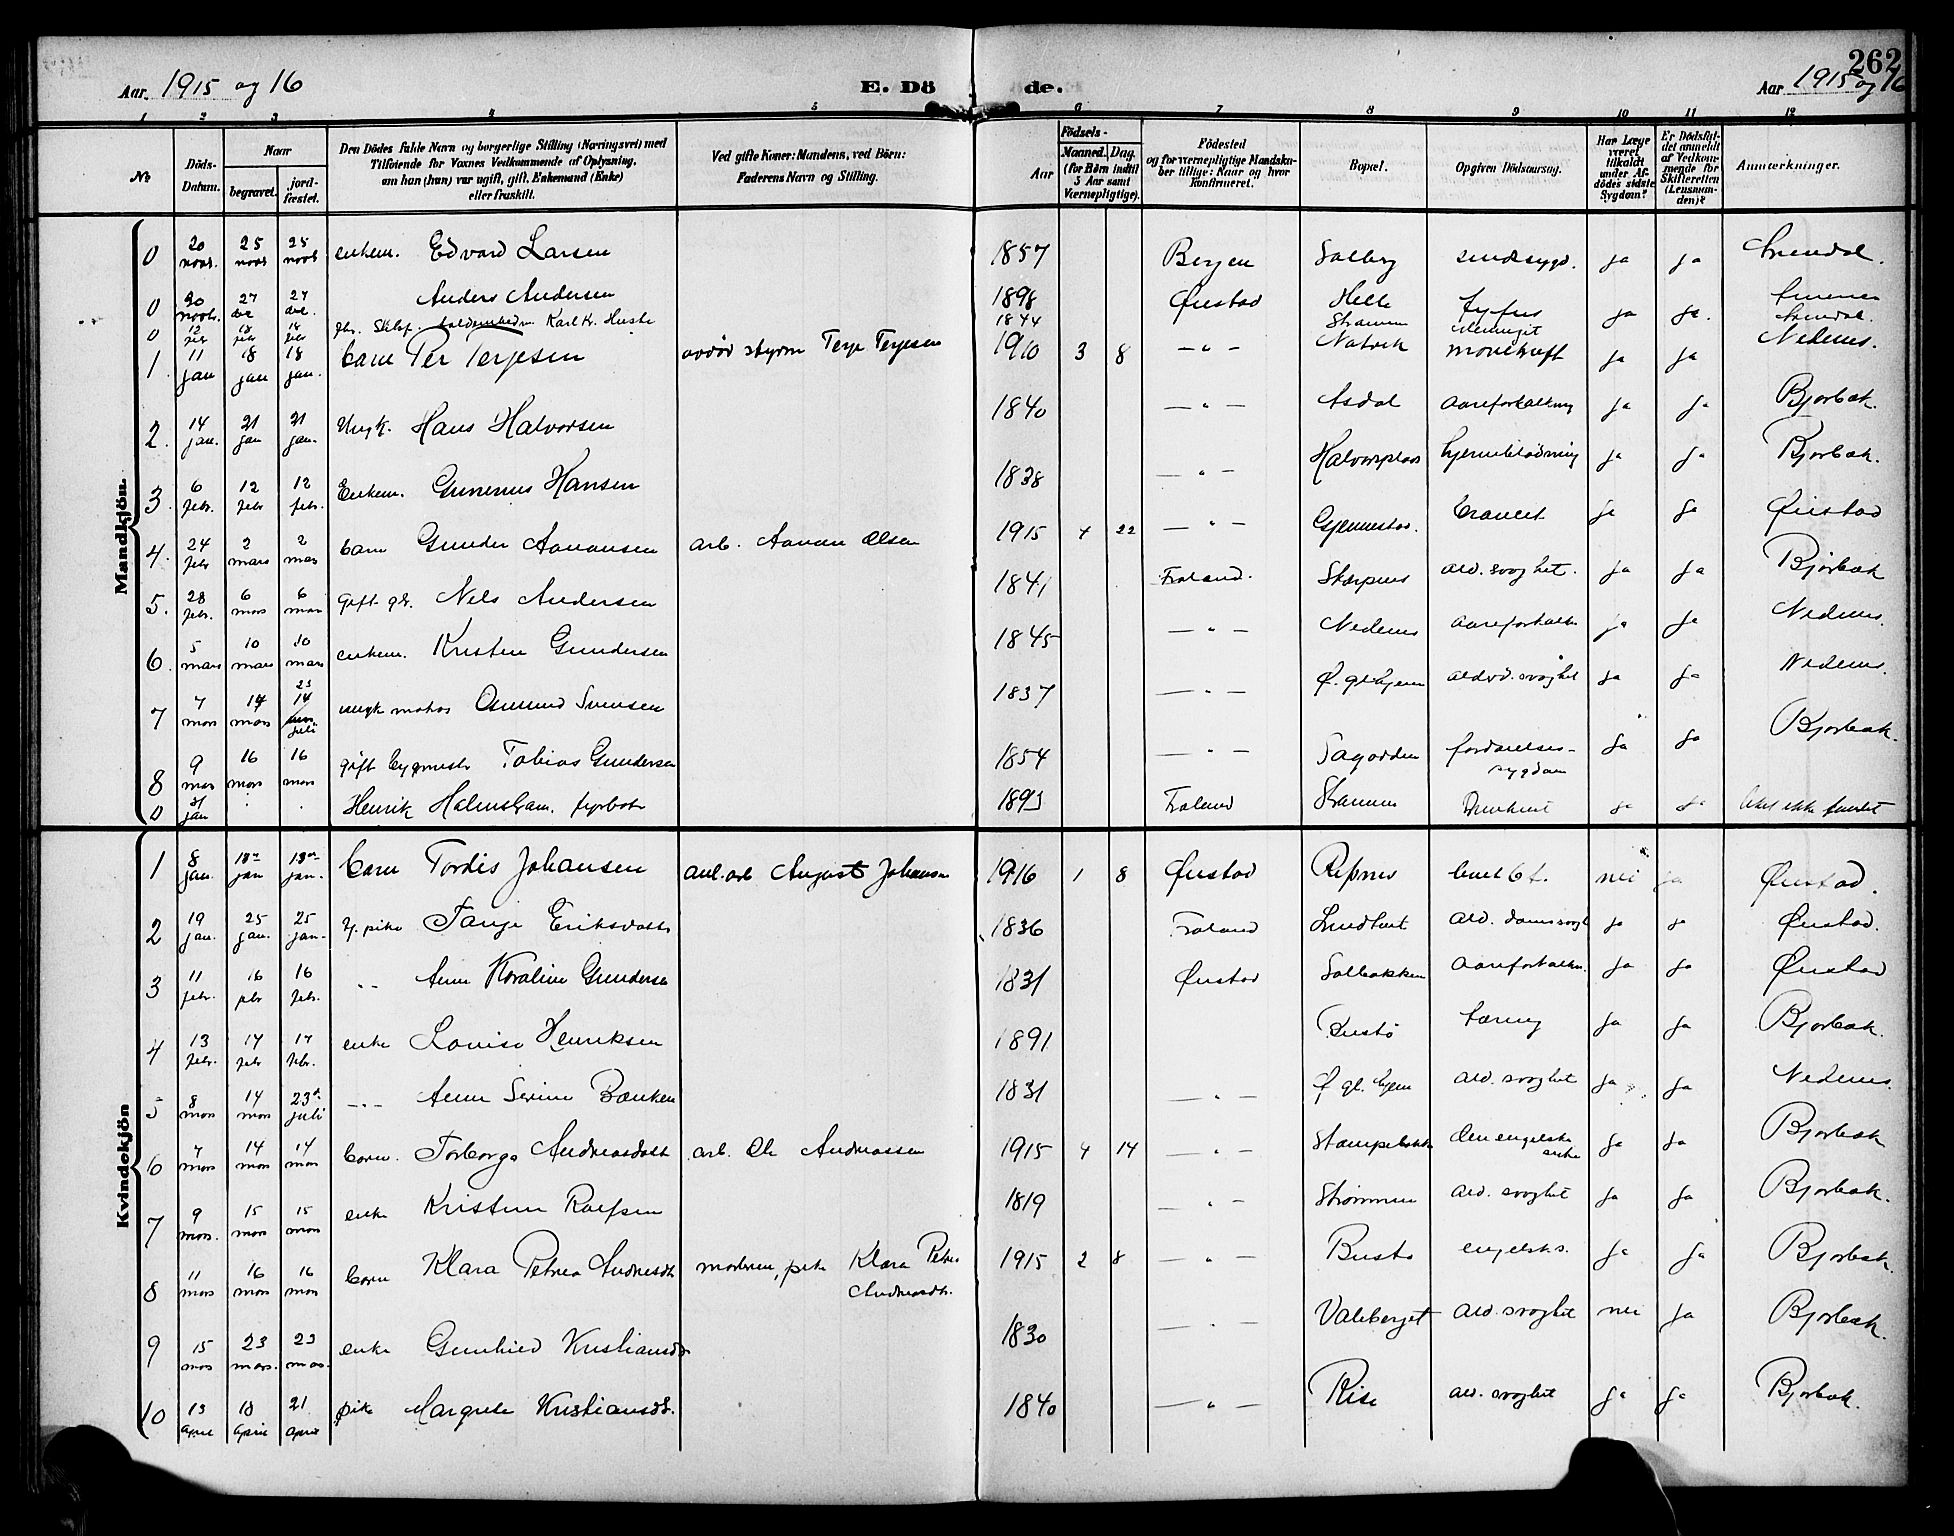 262
Aar. 1915 og 16
E. Dö de.
Aar 1915 og 16
1 2 3 4 5 6 7 8 9 10 11 12
No
Döds-Datum.
Naar
begravet.
jord-fæstet.
Den Dödes fulde Navn og borgerlige Stilling (Næringsvei) med
Tilföiende for Voxnes Vedkommende af Oplysning,
om han (hun) var ugift, gift, Enkemand (Enke)
eller fraskilt.
Ved gifte Koner: Mandens, ved Börn:
Faderens Navn og Stilling.
Aar
Födsels-
Maaned. Dag.
(for Börn indtil
5 Aar samt
Værnepligtige).
Födested
og for værnepligtige Mandska-
ber tillige: Naar og hvor
konfirmeret.
Bopæl.
Opgiven Dödsaarsag.
Har Læge
været
tilkaldt
under Af-
dödes sidste
Sygdom?
Er Dödsfal-
det anmeldt
af Vedkom-
mende for
Skifteretten
(Lensman-
den)?
Anmærkninger.
Mandkjön.
0 20 novbr. 25 novbr 25 novbr enkem. Edvard Larsen 1857 Bergen Solberg sindssygd. ja ja
0 20 novbr. 27 27 Anders Andersen 1898 Øiestad Helle tyfus ja ja.
0 12 18 18 Karl Kr. 1844
1. 11 jan 18 jan 18 jan. barn Per Terjesen styrm Terje Terjesen 1910 3 8 — " — Natvik ja ja Nedenes.
2. 14 jan. 21 jan 21 jan. Ungk. Hans Halvorsen 1840 — " — Asdal aareforkalkning ja ja Bjorbæk.
3. 6 febr. 12 febr 12 febr. Enkem. Gunenus Hansen 1838 — " — Halvorsplass hjerneblødning ja ja Bjorbæk.
4. 24 febr 2 mars 2 mars barn Gunder Aanonsen arb. Aanon Olsen 1915 4 22 — " — Gjennestad. ja ja Øiestad
5. 28 febr. 6 mars 6 mars gift Nels Andersen 1841 Froland. ald. svaghet. ja ja Bjorbæk
6. 5 mars 10 mars 10 mars enkem. Kristen Gundersen 1845 — " — Nedenes aareforkalkn ja ja Nedenes.
7 7 mars 14 mars 23 14 juli ungk matros Osmund Svensen 1837 — " — Ø. glhjem alderd. svaghet ja ja Nedenes.
8 9 mars 16 mars 16 mars gift bygmestr Tobias Gundersen 1854 — " — Sagodden fordøielses-sygdom ja ja Bjorbæk.
0 31 jan Henrik fyrbøt 1893 Froland Strømmen Druknet ja ja liket ikke fundet
Kvindekjön
1 8 jan. 18 jan 18 jan. barn Tordis Johansen anl. arb August Johansen 1916 1 8 Øiestad Ripnes nei ja Øiestad.
2 19 jan. 25 jan. 25 jan. pike Tanje Eriksdatt 1836 Froland ja ja Øiestad.
3 11 febr. 16 febr 16 febr. " Anne Karoline Gundersen 1831 Øiestad Solbakken aareforkalkn. ja ja Øiestad
4 13 febr. 17 febr 17 febr. enke Lovise Henriksen 1891 Bustø tæring ja ja Bjorbæk.
5 8 mars 14 mars 23 juli — " — Anne Serine Bænken 1831 — " — Ø gl. hjem ald. svaghet ja ja Nedenes.
6 7 mars 14 mars 14 mars barn. Torborg Andreasdatt arb. Ole Andreassen 1915 4 14 — " — den engelske syke ja ja Bjorbæk
7 9 mars. 15 mars 15 mars enke Kristine Roefsen 1819 " — Strømmen ald. svaghet ja ja Bjorbæk.
8 11 mars 16 mars 16 mars barn Klara Petrea Andreasdt moderen, pike Klara Petrea Andreasdt. 1915 2 8 — " — Bustø engelsk s. ja ja Bjorbæk.
9 15 mars 23 mars. 23 mars. enke Gunhild Kristiansdt 1830 — " — Valeberget ald. svaghet nei ja Bjorbæk.
10 13 april 18 april 21 april pike Margrete Kristiansdt. 1840 — " — Rise ald. svaghet ja ja Bjorbæk.